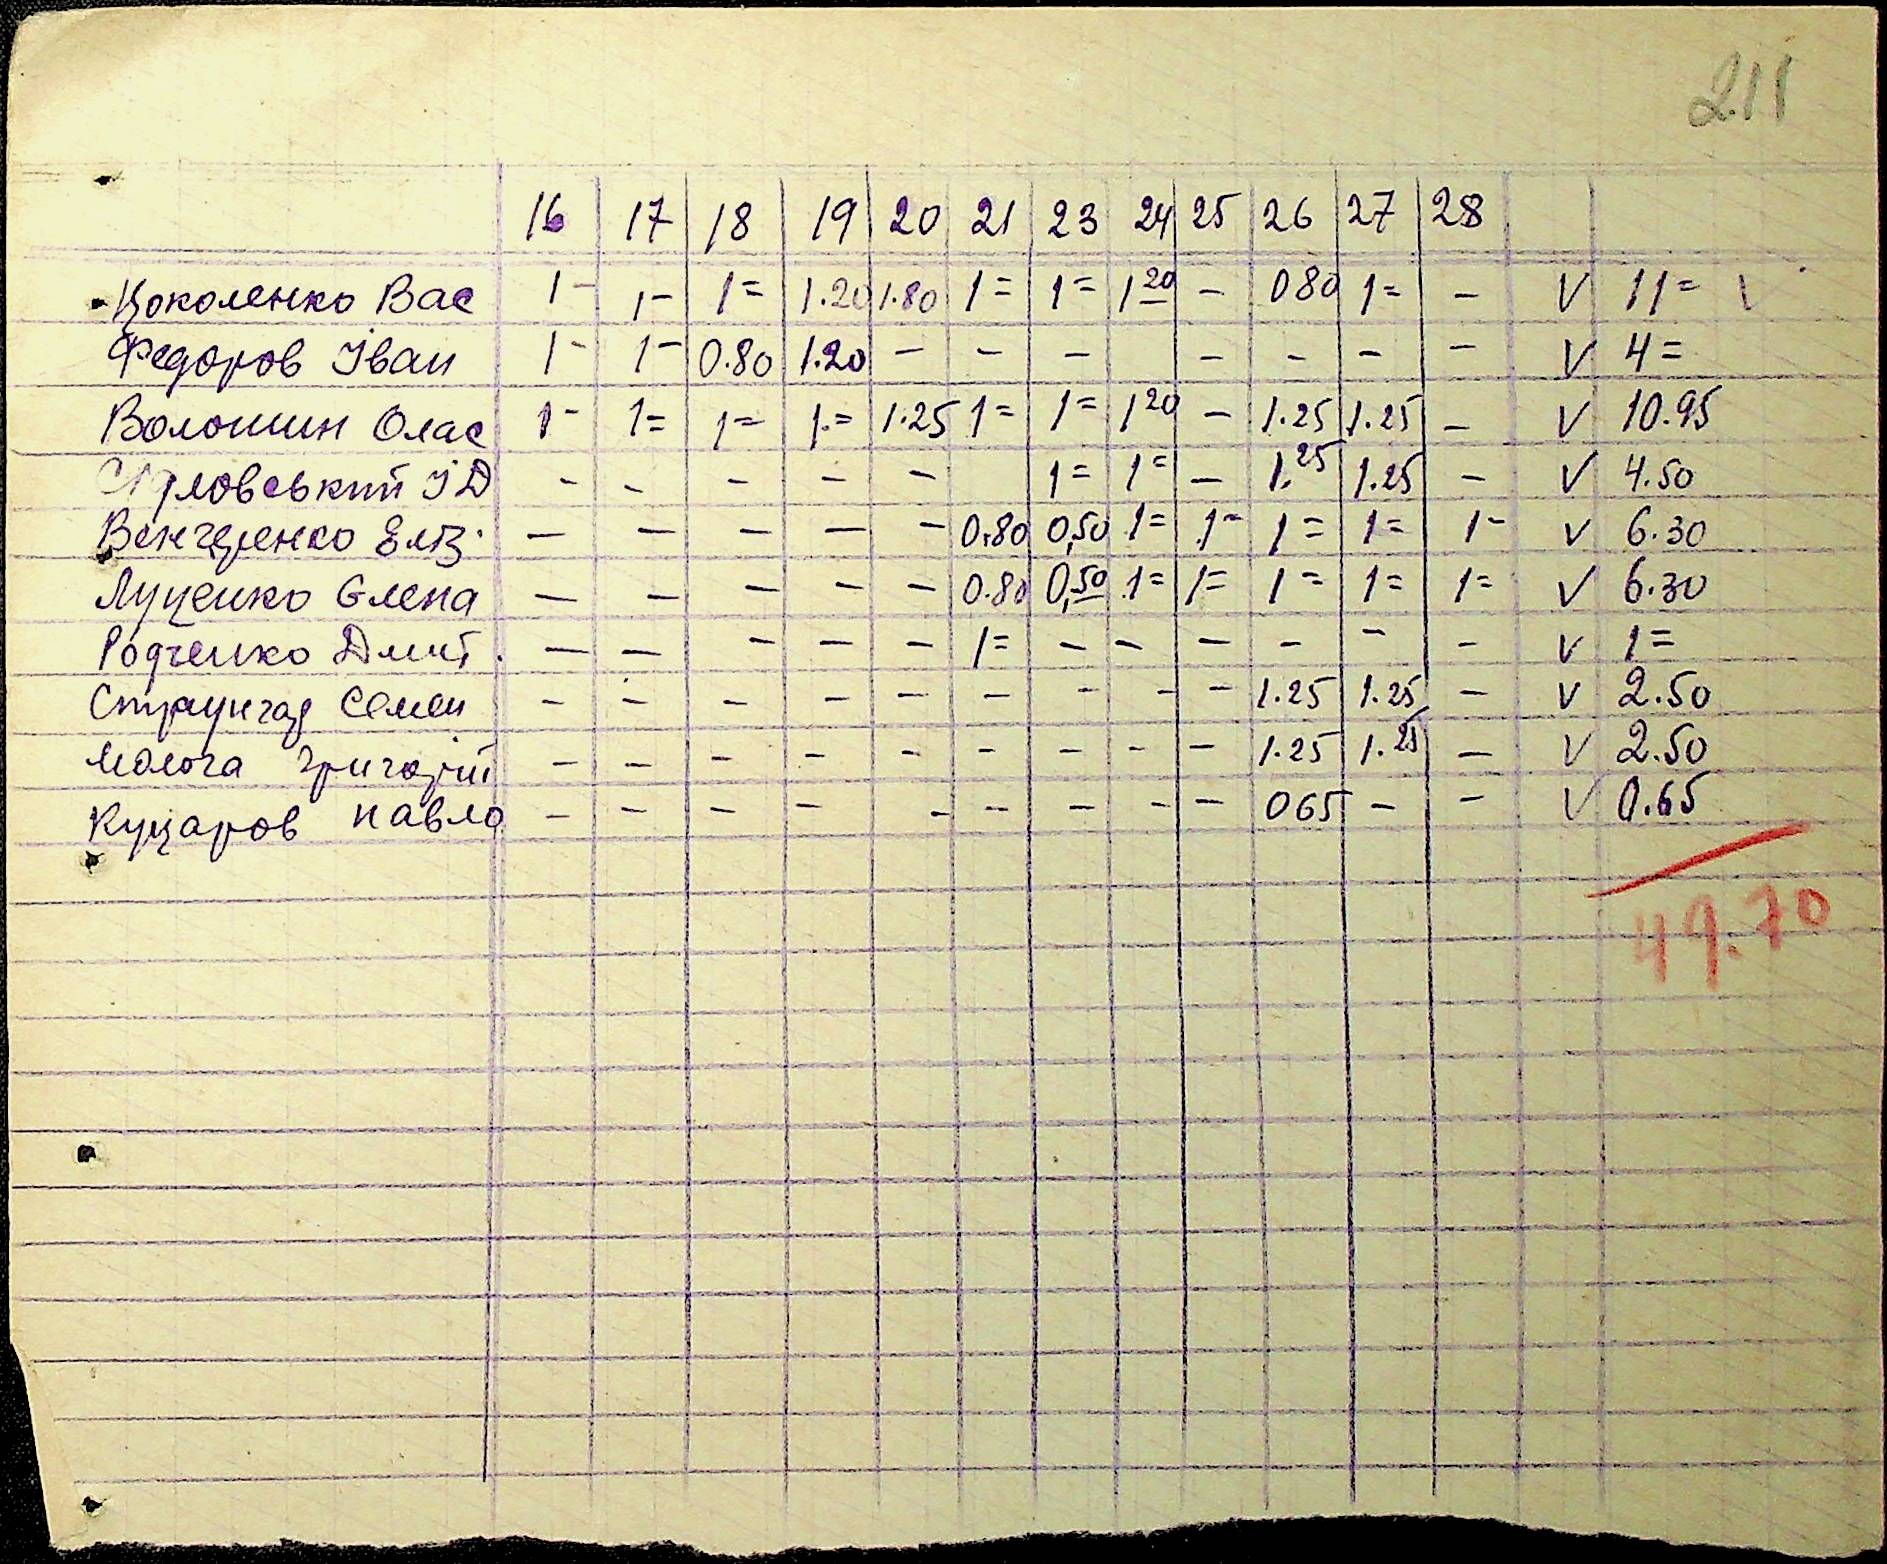 211
16 17 18 19 20 21 23 24 25 26 27 28
Цоколенко Вас 1- 1- 1= 1.20 1.80 1= 1= 1 20 - 080 1= - V 11= \
Федоров Іван 1- 1- 0.80 1.20 - - - - - - - V 4=
Волошин Олас 1- 1= 1= 1.= 1.25 1= 1= 1 20 - 1.25 1.25 - V 10.95
ІД - - - - - 1= 1= - 1.25 1.25 - V 4.50
Венгеренко Елiз. - - - - - 0.80 0,50 1= 1- 1= 1= 1- V 6.30
Луценко Єлена - - - - - 0.80 0,50 1= 1= 1= 1= 1= V 6.30
Родченко Дмит. - - - - - 1= - - - - - - V 1=
Семен - - - - - - - - - 1.25 1.25 - V 2.50
Молога Григорій - - - - - - - - - 1.25 1.25 - V 2.50
Куцаров Павло - - - - - - - - - 065 - - V 0.65
49.70